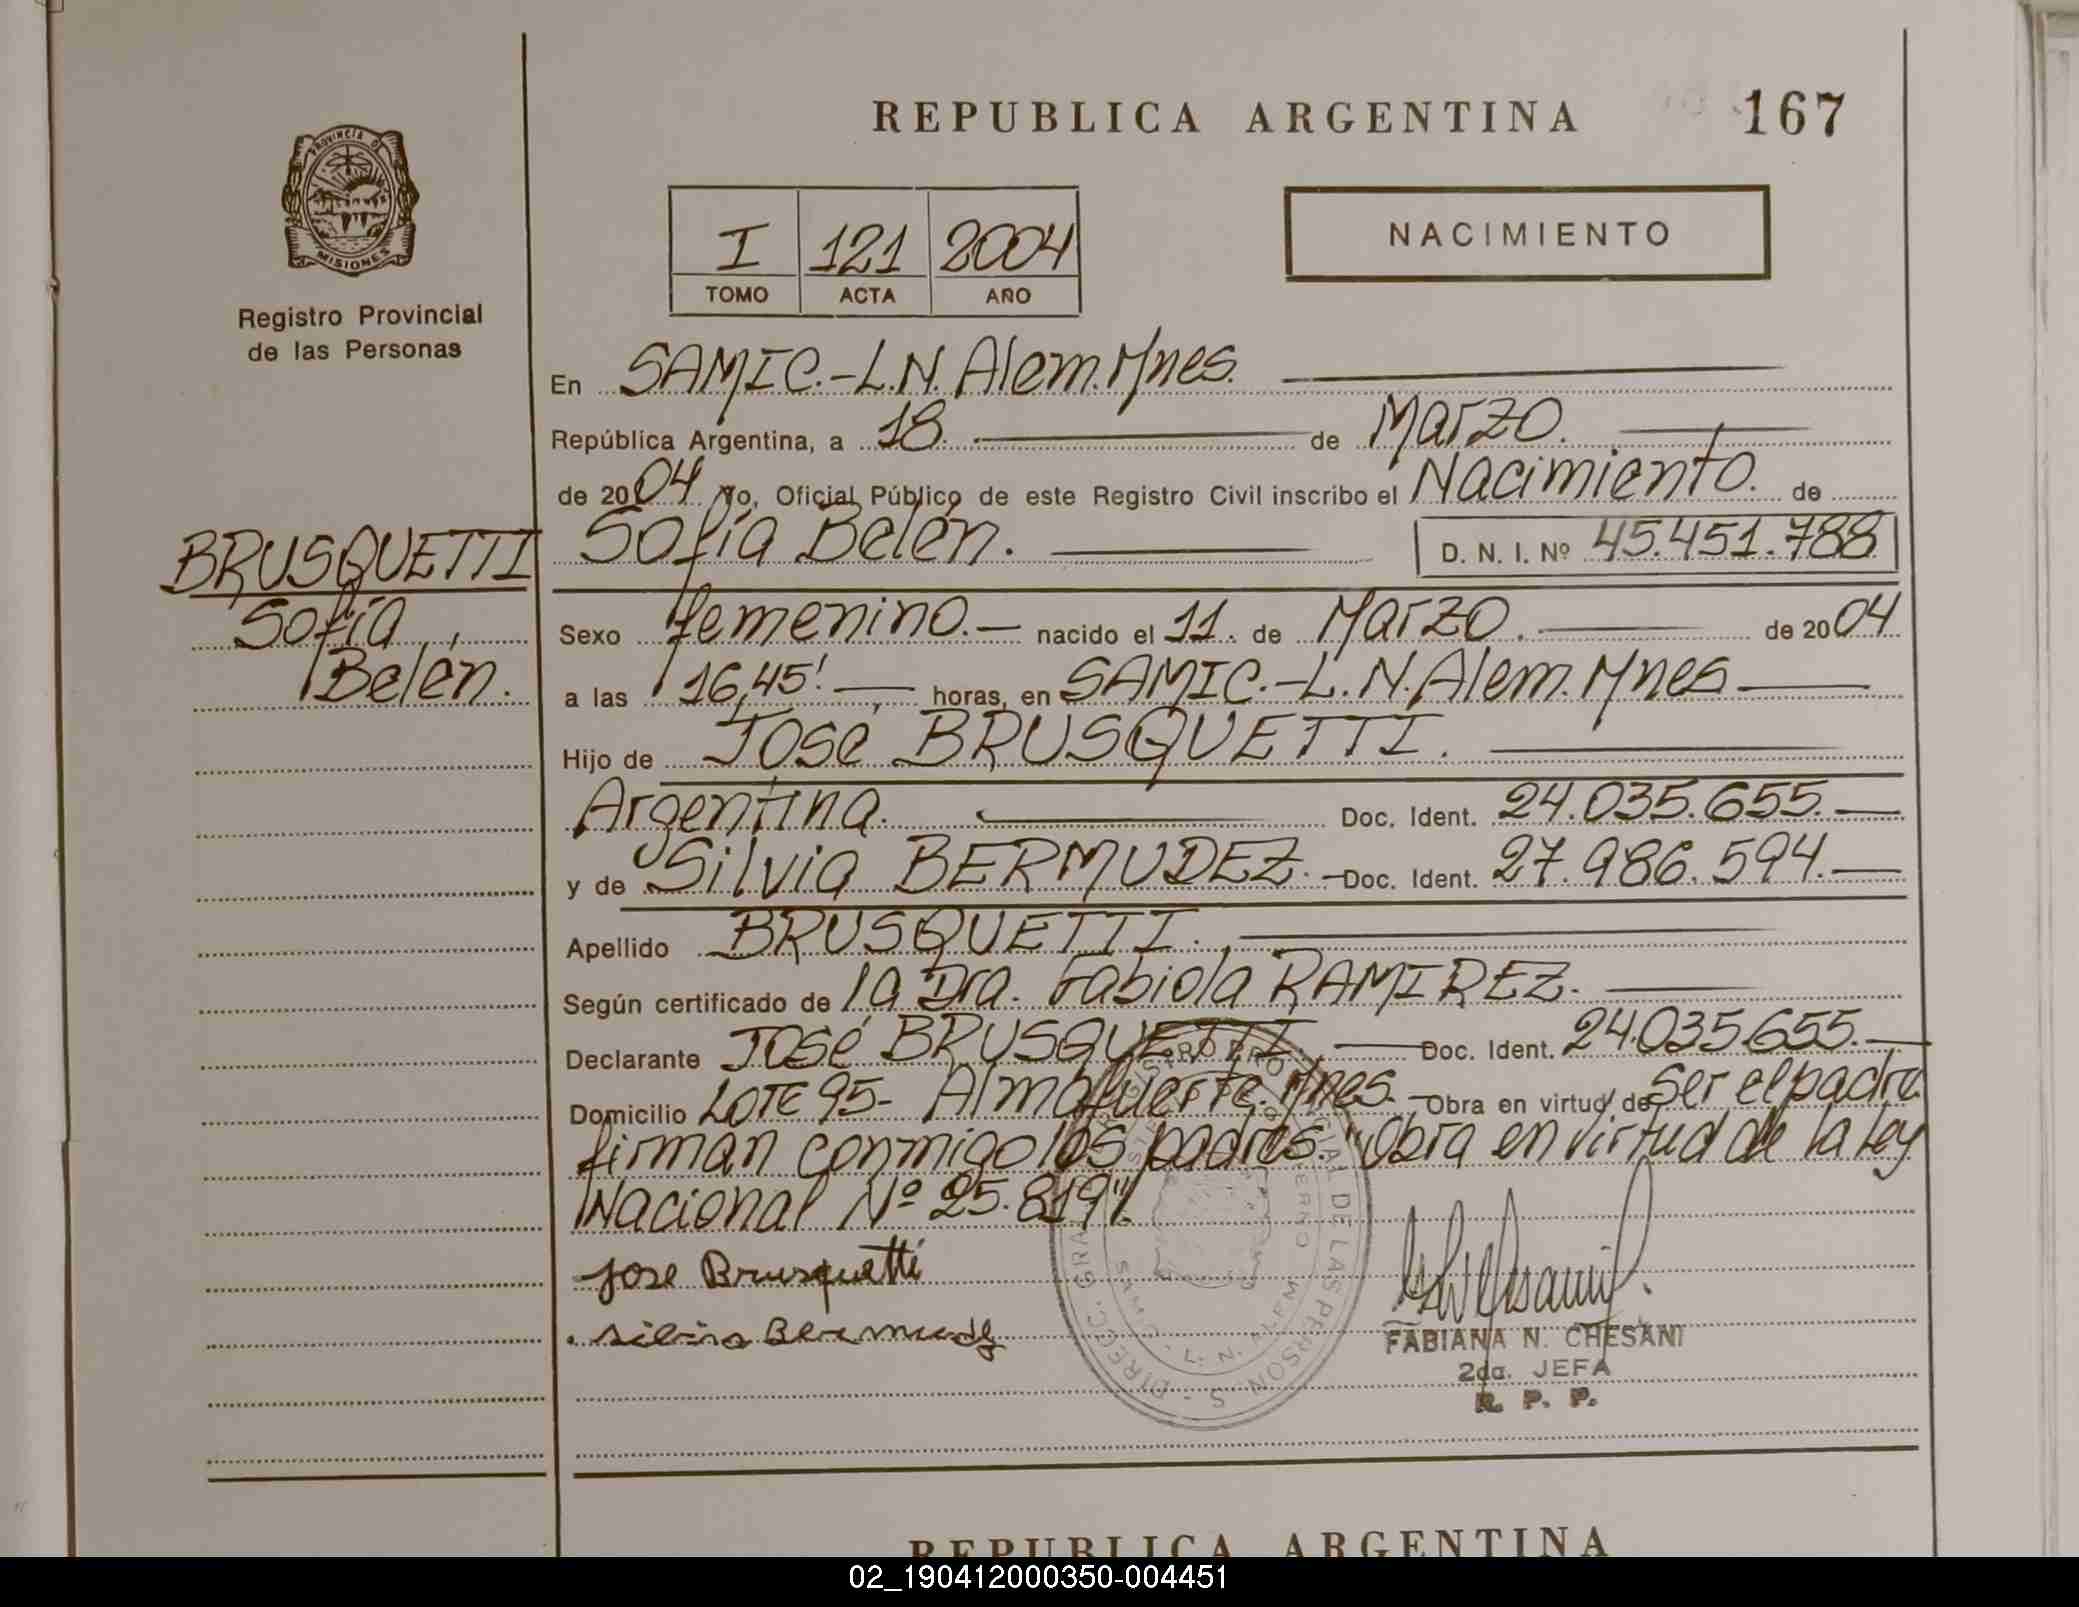 REPUBLICA ARGENTINA
167
PROVINCIA DE
MISIONES
Registro Provincial
de las Personas
I 121 2004
TOMO ACTA AÑO
NACIMIENTO
En SAMIC.-L.N. Alem. Mnes.
República Argentina, a 18. de Marzo.
de 2004 Yo, Oficial Público de este Registro Civil inscribo el Nacimiento. de
Sofía Belén. D. N. I. Nº 45.451.788
BRUSQUETTI
Sofía
Belén.
Sexo femenino.- nacido el 11. de Marzo. de 2004
a las 16,45'. horas, en SAMIC.-L.N. Alem. Mnes
Hijo de José BRUSQUETTI.
Argentina. Doc. Ident. 24.035.655.-
y de Silvia BERMUDEZ.- Doc. Ident. 27.986.594.-
Apellido BRUSQUETTI.
Según certificado de la Dra. Fabiola RAMIREZ.
Declarante José BRUSQUETTI. Doc. Ident. 24.035.655.-
Domicilio LOTE 95- Almafuerte. Mnes.- Obra en virtud de Ser el padre
firman conmigo los padres. "Obra en virtud de la Ley
Nacional Nº 25.819".
Jose Brusquetti
Silvia Bermudez
FABIANA N. CHESANI
2da. JEFA
R. P. P.
REPUBLICA ARGENTINA
02_190412000350-004451